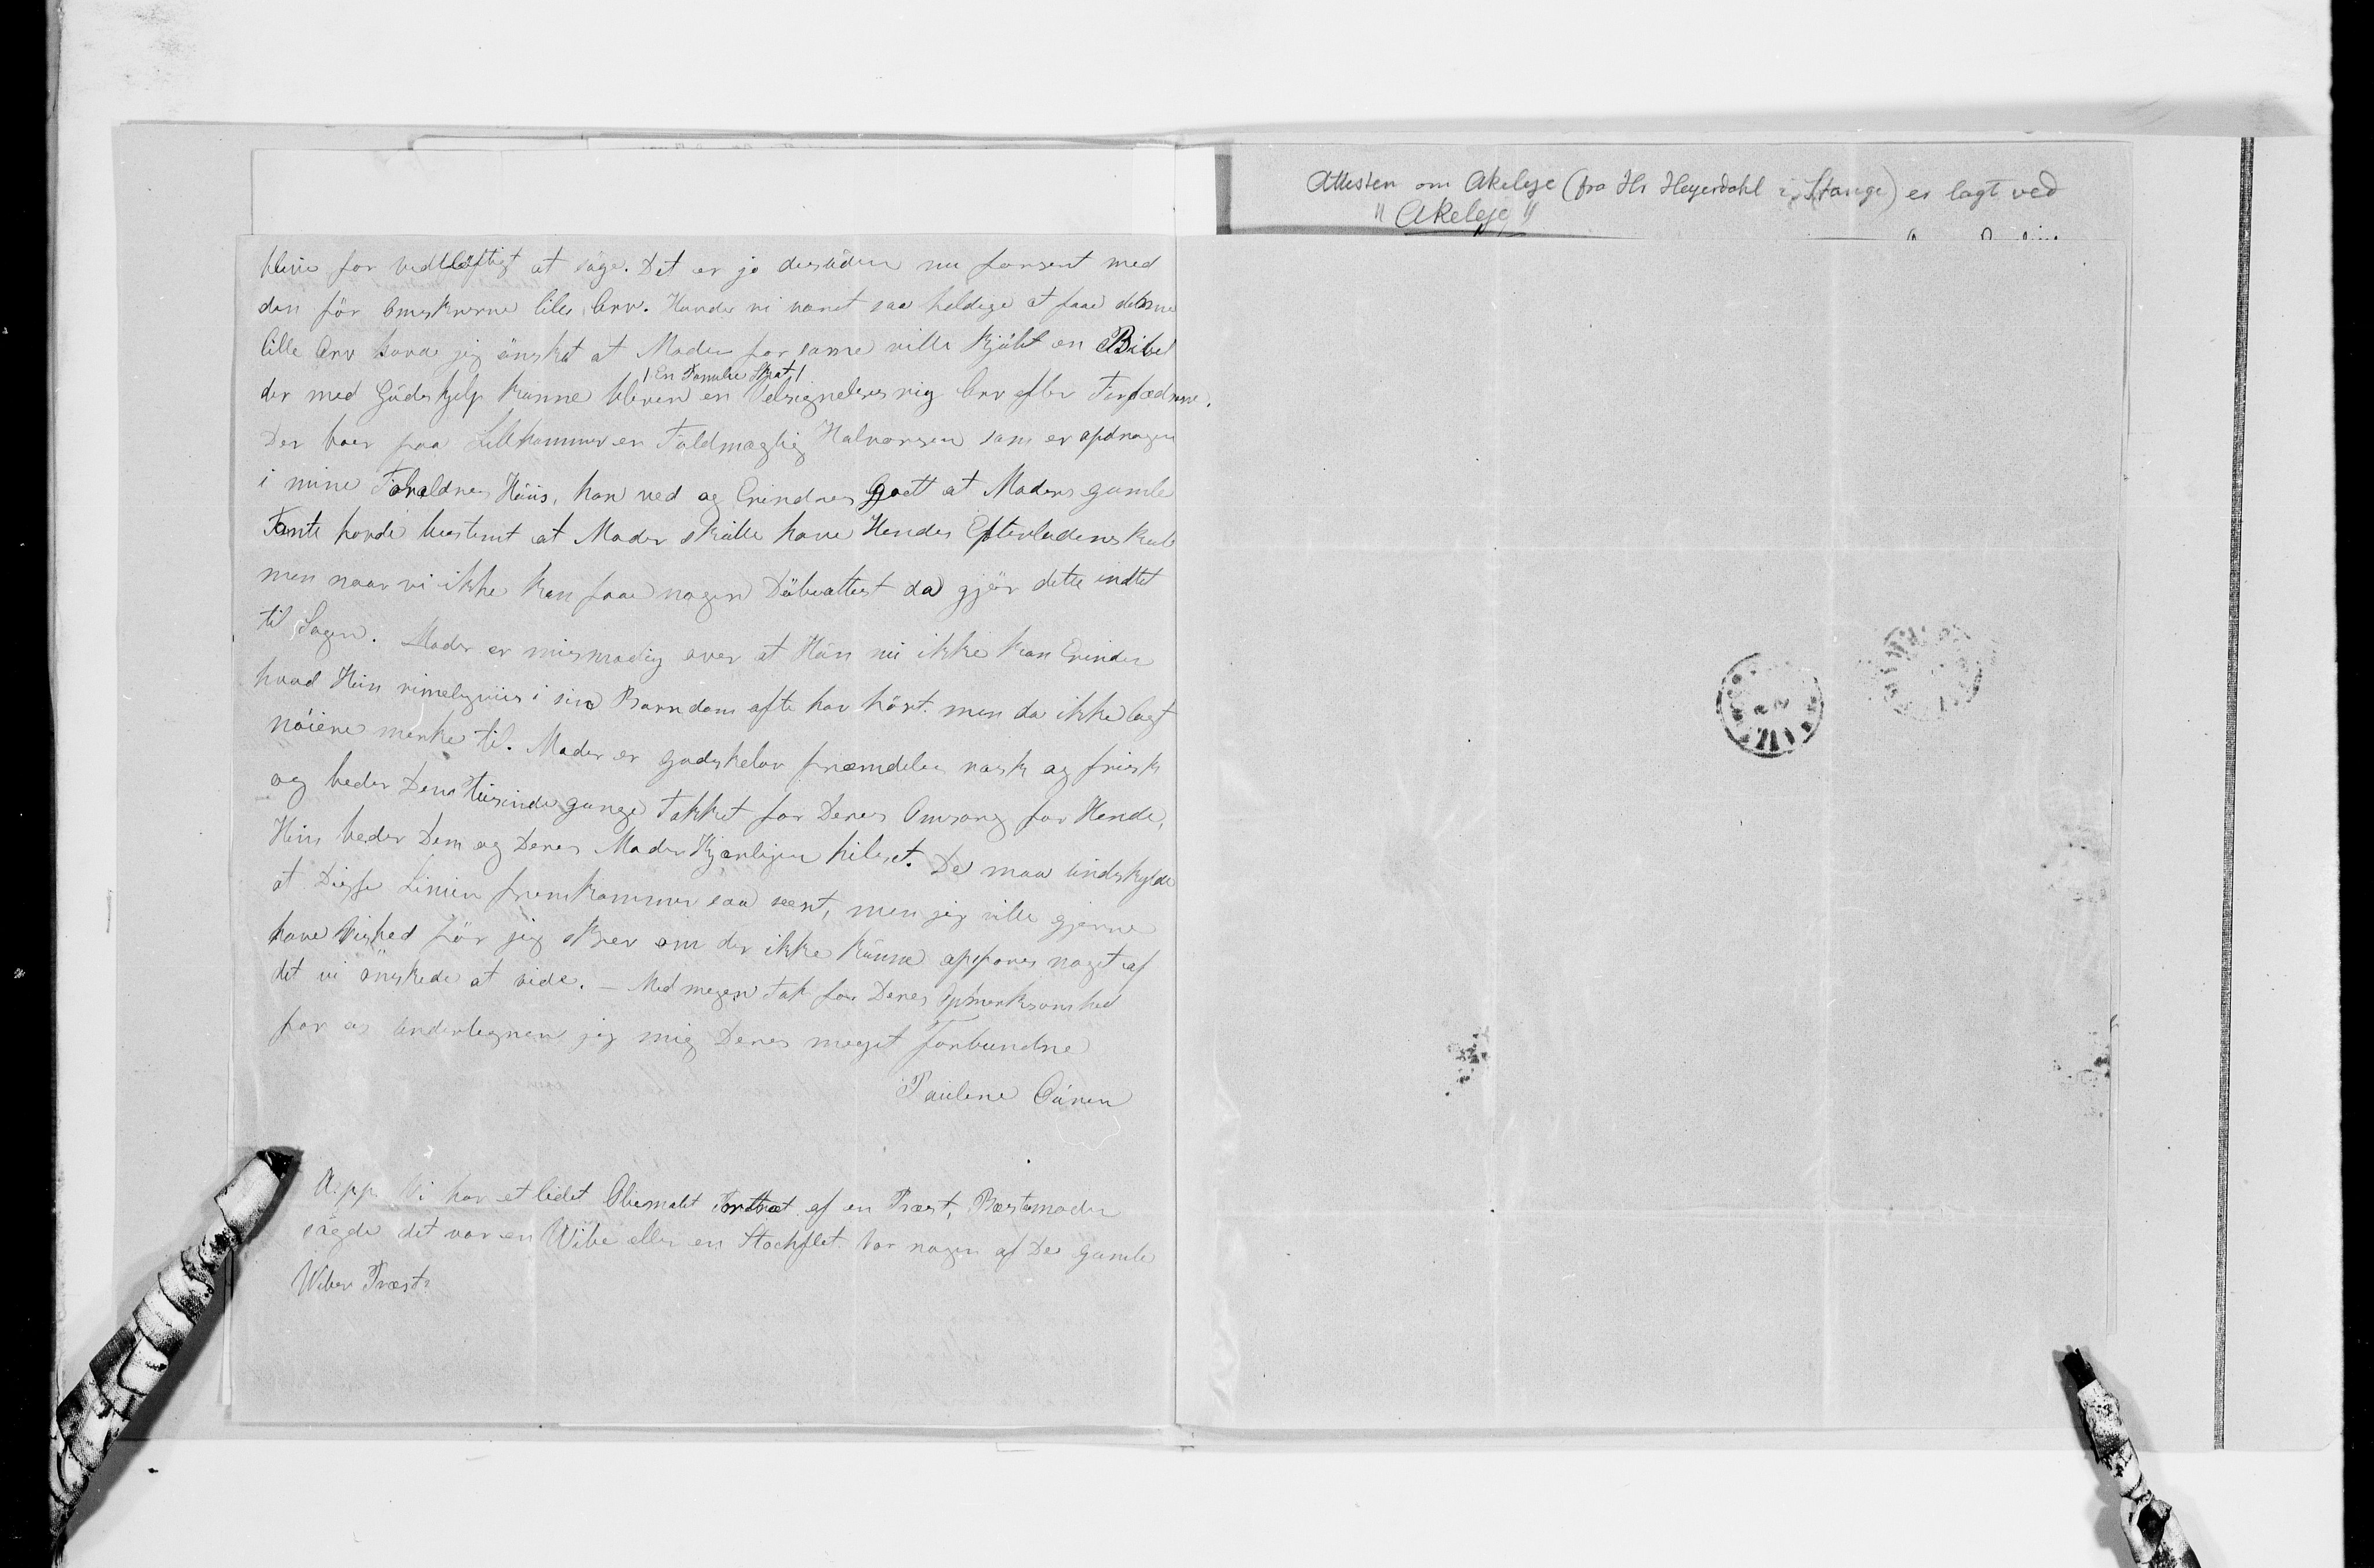 blive for vidtløftigt at søge. Det er jo desuden nu forsent med
den for Omskrevne lille Arv. Havde vi været saa heldige at faae denne
lille Arv havde jeg ønsket at Moder for samme ville kjøbt en Bibel
/ En Familie Skat /
der med Guds hjelp kunne bleven en Velsignelsesrig Arv efter Forfædrene.
Der boer paa Lillehammer en Fuldmægtig Halvorsen som er opdragen
i mine Forældres Huus, han ved og Erindres Godt at Moders gamle
Tante havde bestemt at Moder skulle have Hendes Efterladenskab
men naar vi ikke kan faae nogen Døbeattest da gjør dette indtet
til Sagen. Moder er mismodig over at Hun nu ikke kan Erindre
hvad Hun rimeligviis i sin Barndom ofte har hørt men da ikke lagt
nøiere merke til. Moder er gudskelov fremdeles rask og frisk
og beder Dem tusinde gange Takket for Deres Omsorg for Hende,
Hun beder Dem og Deres Moder Kjærligen hilset. De maa undskylde
at Disse Linier fremkommer saa seent, men jeg ville gjerne
have Vished før jeg skrev om der ikke kunne opspores noget af
det vi ønskede at vide. – Med megen Tak for Deres Opmerksomhed
for os undertegner jeg mig Deres meget forbundne
Pauline
Vi har et lidet Oliemalt Portræt af en Præst, Bestemoder
sagde det var en Wibe eller en Stochflet. Var nogen af De Gamle
Wiber Præst?
Attesten om Akeleje (fra Hr Heyerdahl i Stange) er lagt ved
"Akeleje"